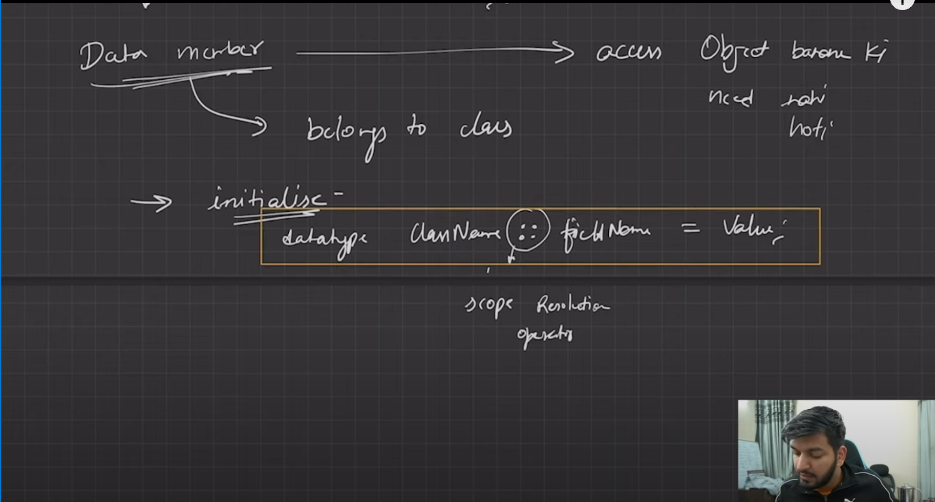 Data member → access Object banane ki
need nahi
hoti
belongs to class
→ initialise -
datatype className :: fieldName = value;
scope Resolution
operator